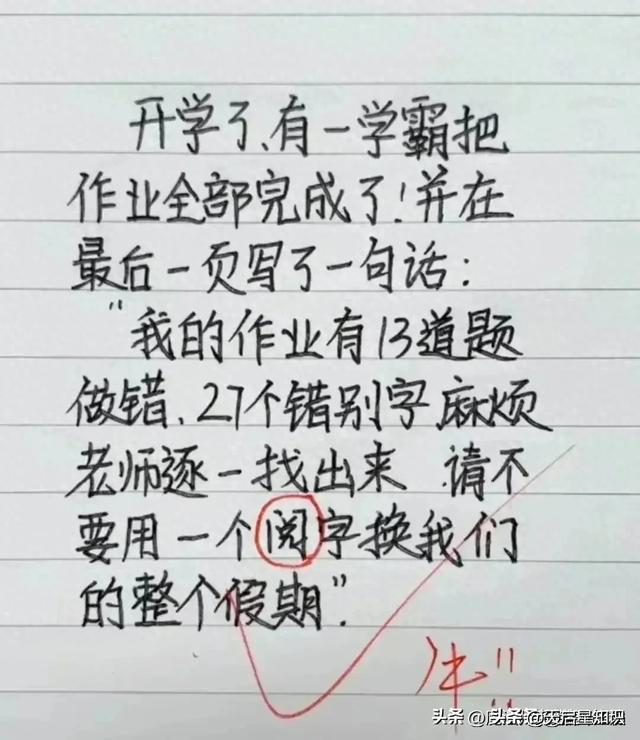 开学了、有一学霸把
作业全部完成了!并在
最后一页写了一句话:
“我的作业有13道题
做错、27个错别字麻烦
老师逐一找出来 请不
要用一个阅字换我们
的整个假期”.
牛!!
头条@天启星知识